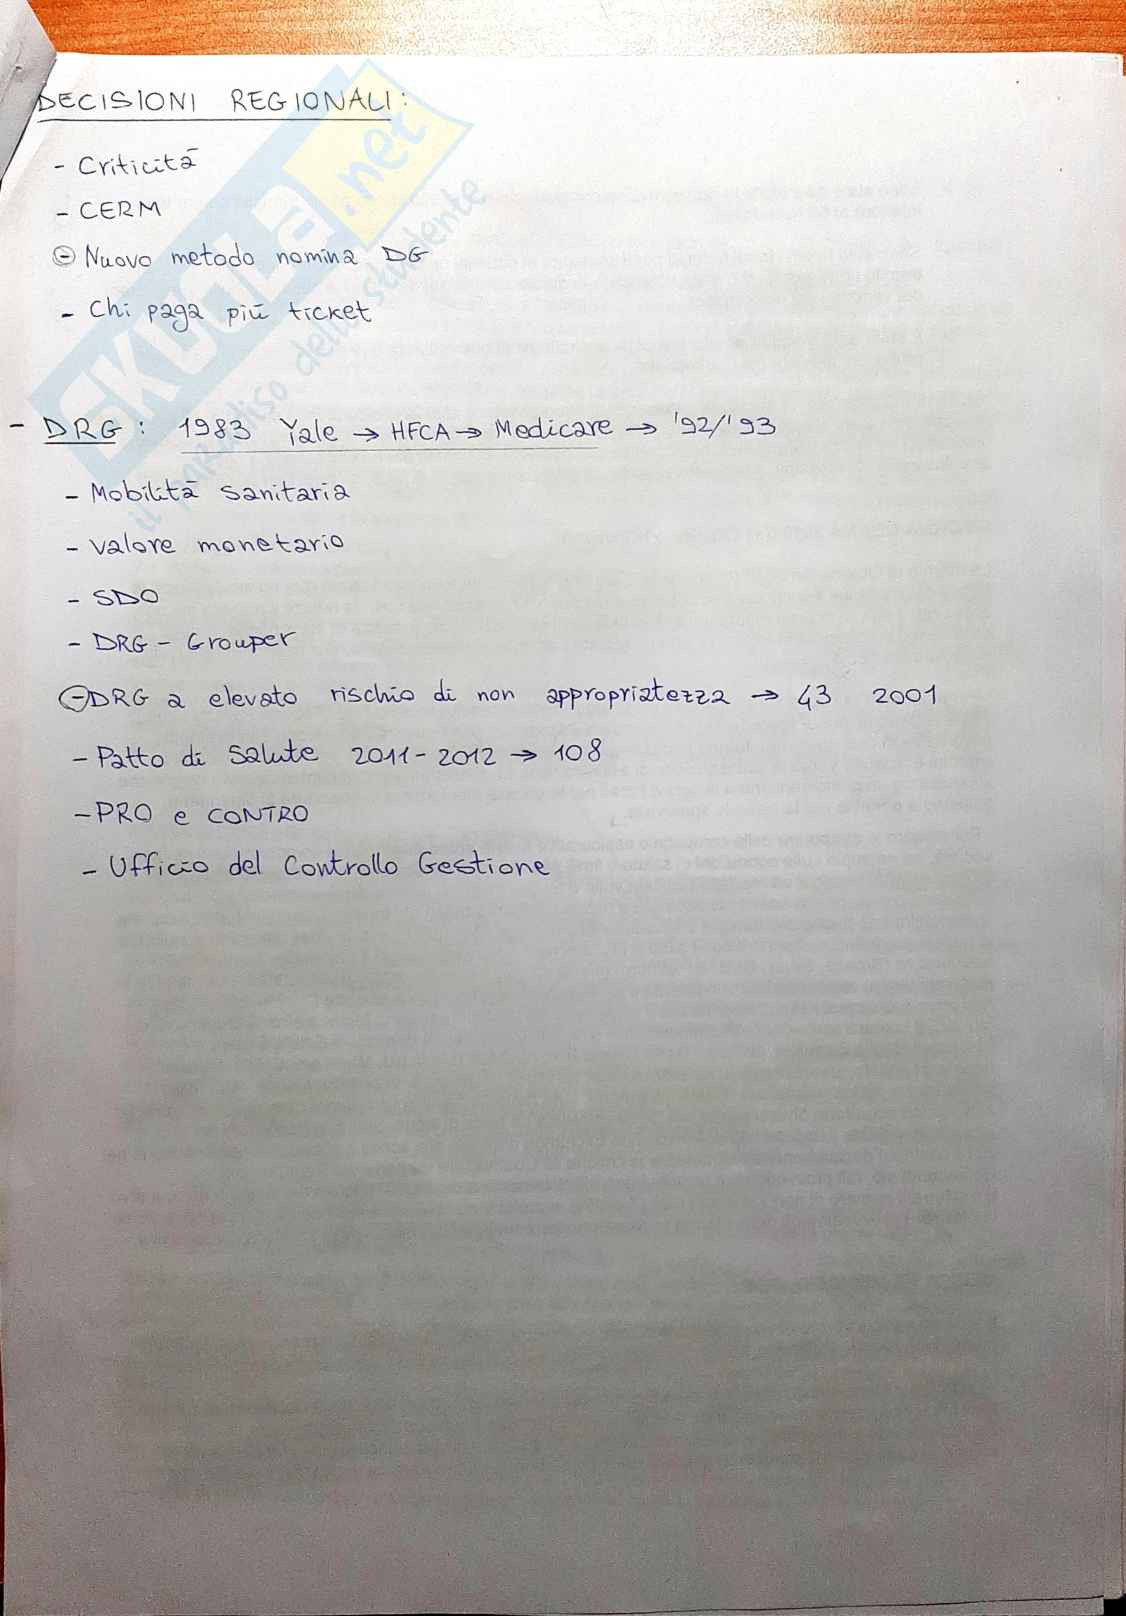 DECISIONI REGIONALI:
- Criticità
- CERM
- Nuovo metodo nomina DG
- Chi paga più ticket
- DRG: 1983 Yale → HFCA → Medicare → '92/'93
- Mobilità sanitaria
- Valore monetario
- SDO
- DRG - Grouper
- DRG a elevato rischio di non appropriatezza → 43 2001
- Patto di Salute 2011-2012 → 108
- PRO e CONTRO
- Ufficio del Controllo Gestione
SKUOLA.net
il paradiso dello studente